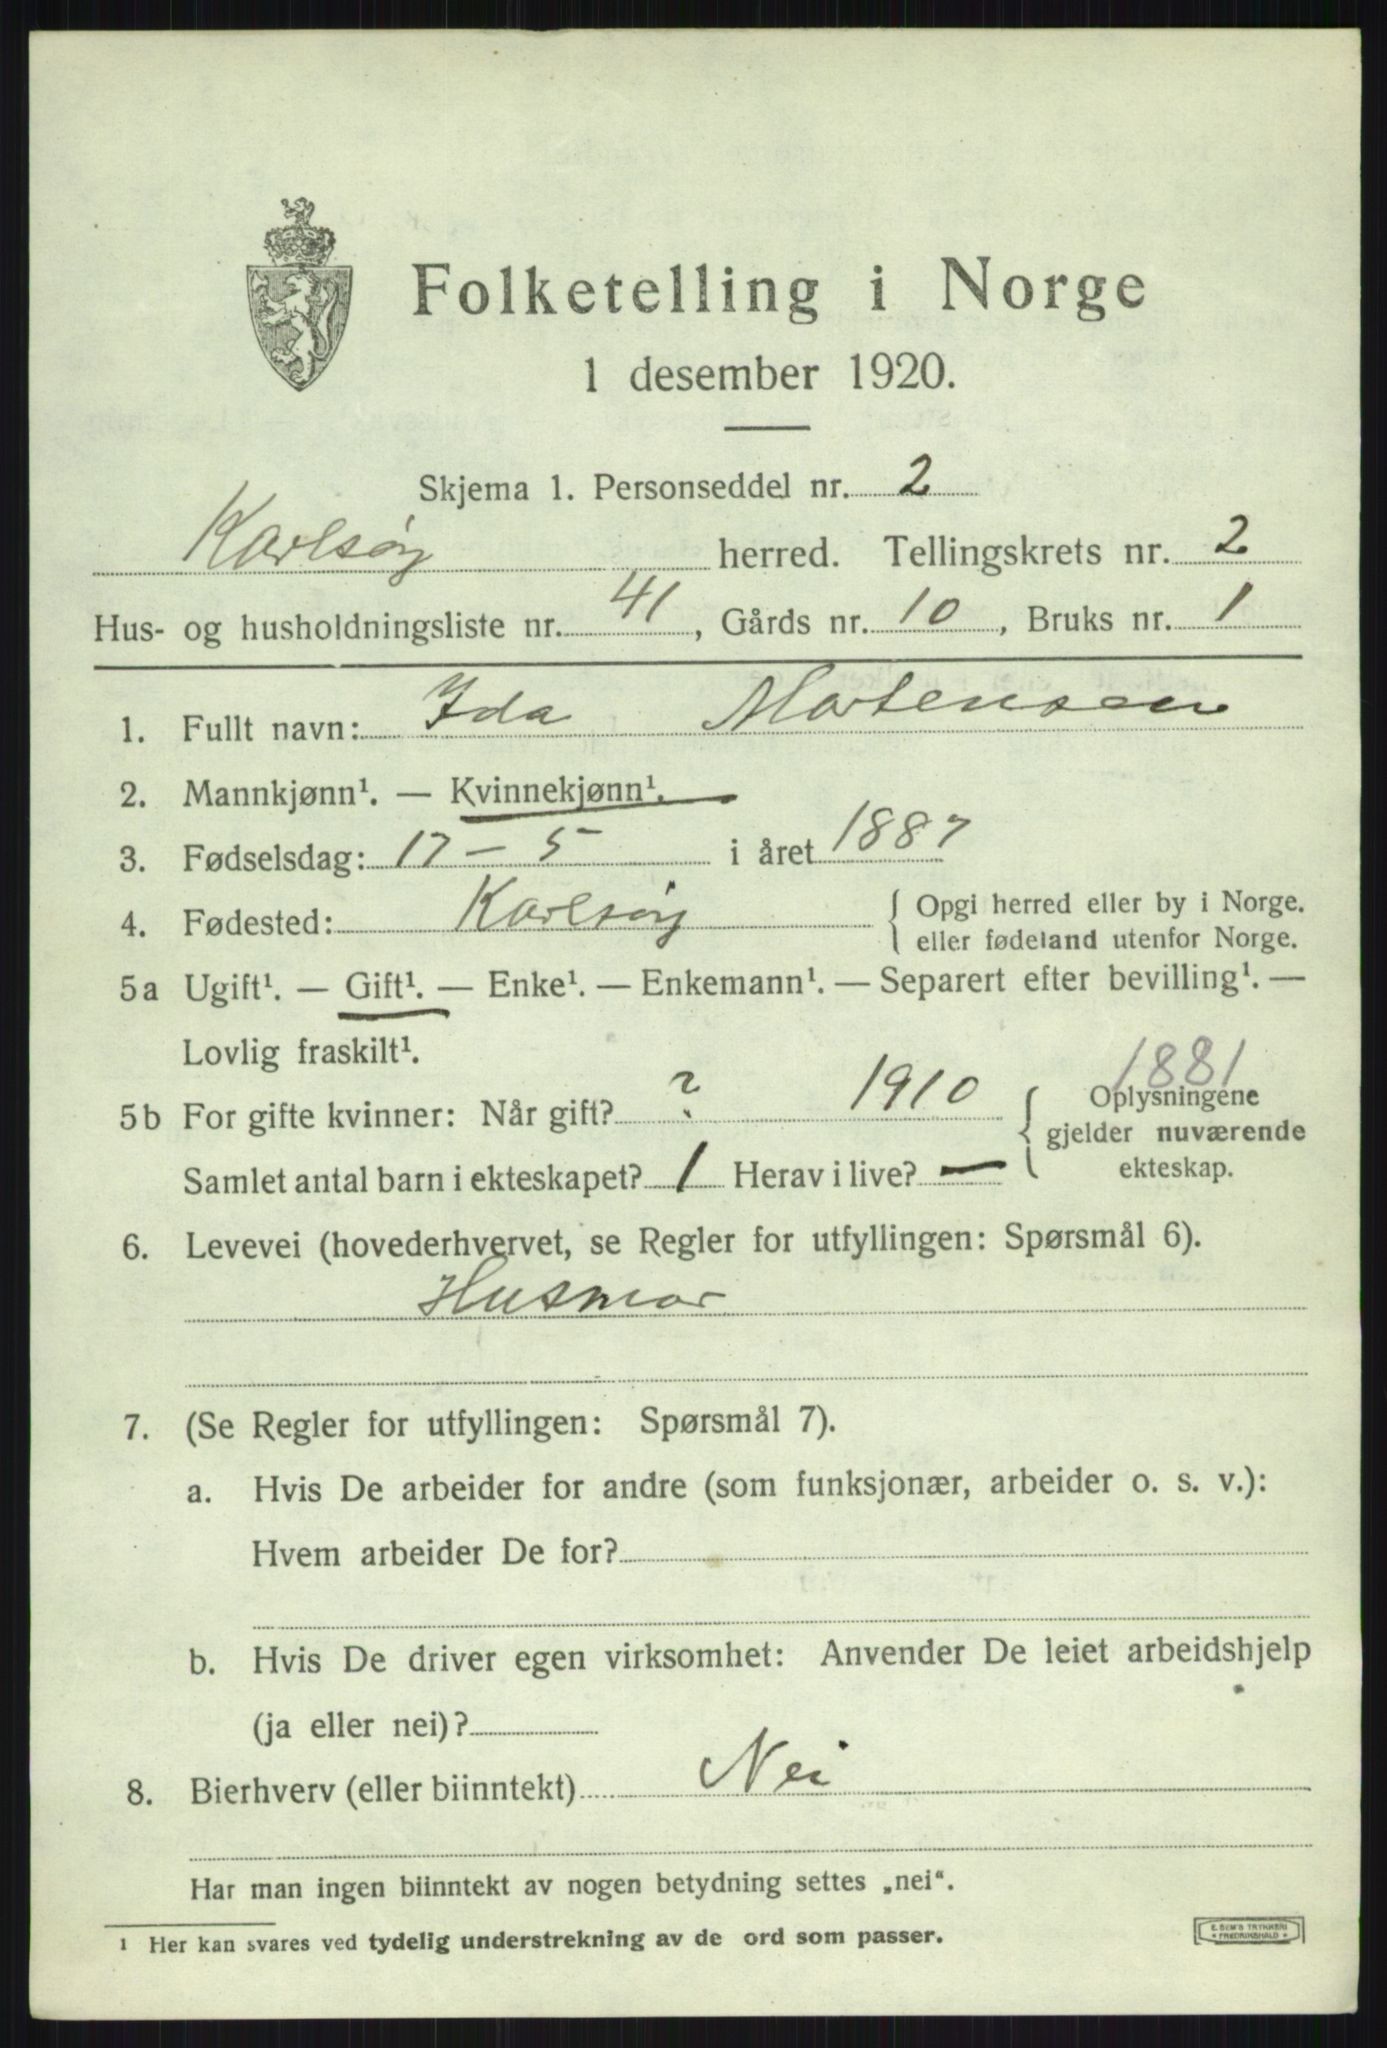 Folketelling i Norge
1 desember 1920.
Skjema 1. Personseddel nr. 2
Karlsøy herred. Tellingskrets nr. 2
Hus- og husholdningsliste nr. 41, Gårds nr. 10, Bruks nr. 1
1. Fullt navn: Ida Mortensen
2. Mannkjønn¹. — Kvinnekjønn¹.
3. Fødselsdag: 17 - 5 i året 1887
4. Fødested: Karlsøy { Opgi herred eller by i Norge.
eller fødeland utenfor Norge.
5a Ugift¹. — Gift¹. — Enke¹. — Enkemann¹. — Separert efter bevilling¹. —
Lovlig fraskilt¹.
1881
5b For gifte kvinner: Når gift? ? 1910 { Oplysningene
gjelder nuværende
Samlet antal barn i ekteskapet? 1 Herav i live? — ekteskap.
6. Levevei (hovederhvervet, se Regler for utfyllingen: Spørsmål 6).
Husmor
7. (Se Regler for utfyllingen: Spørsmål 7).
a. Hvis De arbeider for andre (som funksjonær, arbeider o. s. v.):
Hvem arbeider De for?
b. Hvis De driver egen virksomhet: Anvender De leiet arbeidshjelp
(ja eller nei)?
8. Bierhverv (eller biinntekt) Nei
Har man ingen biinntekt av nogen betydning settes „nei“.
¹ Her kan svares ved tydelig understrekning av de ord som passer.
E. SEM'S TRYKKERI
* FREDRIKSHALD *